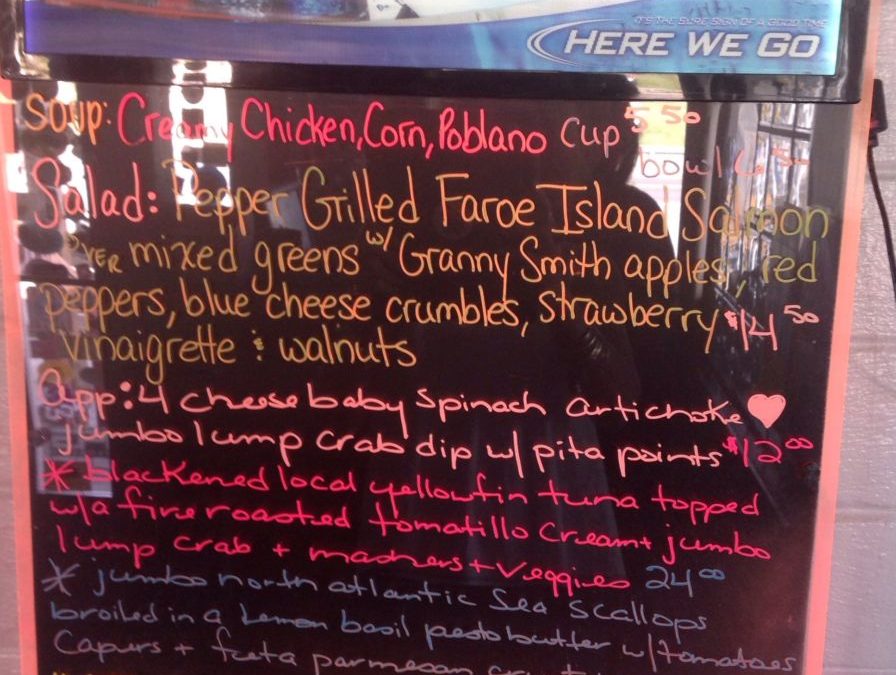 IT'S THE SURE SIGN OF A GOOD TIME
HERE WE GO
Soup: Creamy Chicken, Corn, Poblano Cup 5.50
bowl 6.50
Salad: Pepper Grilled Faroe Island Salmon
over mixed greens w/ Granny Smith apples, red
peppers, blue cheese crumbles, strawberry $14.50
vinaigrette & walnuts
App: 4 cheese baby spinach artichoke ♥
jumbo lump crab dip w/ pita points $12.00
* blackened local yellowfin tuna topped
w/a fire roasted tomatillo cream + jumbo
lump crab + mashers + veggies 24.00
* jumbo north atlantic sea scallops
broiled in a lemon basil pesto butter w/tomatoes
capers + feta parmesan